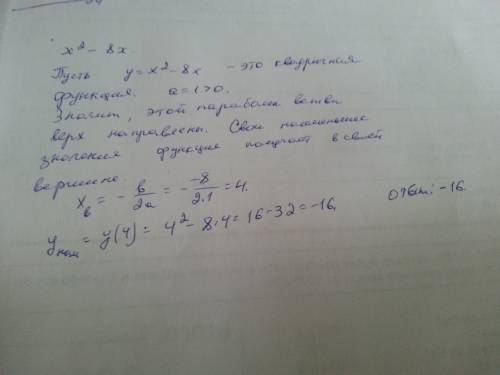 x² - 8x.
Пусть y = x² - 8x - это квадратичная
функция. a = 1 > 0.
Значит, этой параболы ветви
верх направлены. Свои наименьшие
значения функция получает в своей
вершине.
xв = - в/2a = - -8/2·1 = 4.
yнам = y(4) = 4² - 8·4 = 16 - 32 = -16. Ответ: -16.